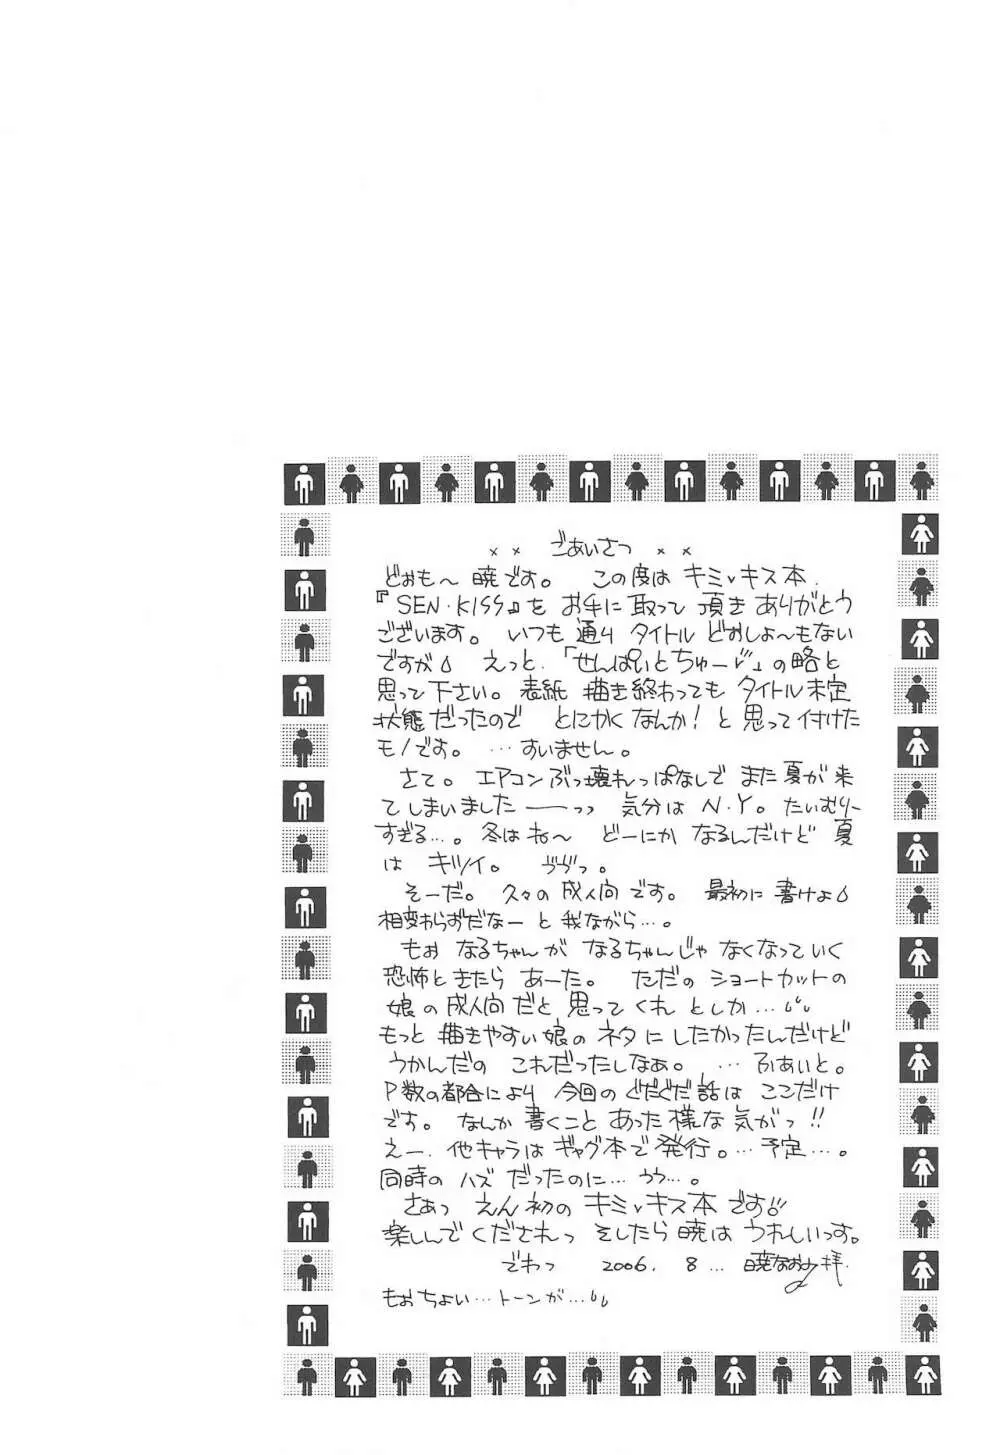 ×× ごあいさつ ××
どぉも〜 暁です。 この度は キミ・キス本.
『SEN・KISS』を お手に取って 頂き ありがとう
ございます。 いつも 通り タイトル どおしょ〜もない
ですが えっと.「せんぱいとちゅーッ」の略と
思って下さい。 表紙 描き終わっても タイトル未定
状態だったので とにかくなんか! と思って付けた
モノです。 …すいません。
さて。 エアコンぶっ壊れっぱなしで また夏が来
てしまいました──っっ 気分は N・Y。 たいむりー
すぎる…。 冬はね〜 どーにか なるんだけど 夏
は キツイ。 ゔゔっ。
そーだ。 久々の成人向です。 最初に 書けよ
相変わらずだなー と 我ながら…。
もぉ なるちゃんが なるちゃんじゃ なくなっていく
恐怖ときたら あーた。 ただの ショートカットの
娘の成人向だと 思ってくれ としか…
もっと 描きやすい娘の ネタ にしたかったんだけど
うかんだの これだったしなぁ。 … ふぁいと。
P数の都合により 今回の どだぐだ話は ここだけ
です。 なんか 書くこと あった様な気がっ!!
えー. 他キャラは ギャグ本で発行。… 予定…。
同時の ハズ だったのに… うう…。
さぁっ えん初の キミ・キス本 です
楽しんでくだされっ そしたら 暁は うれしいっす。
でわっ 2006. 8 … 暁なおみ 拝.
もぉちょい… トーンが…